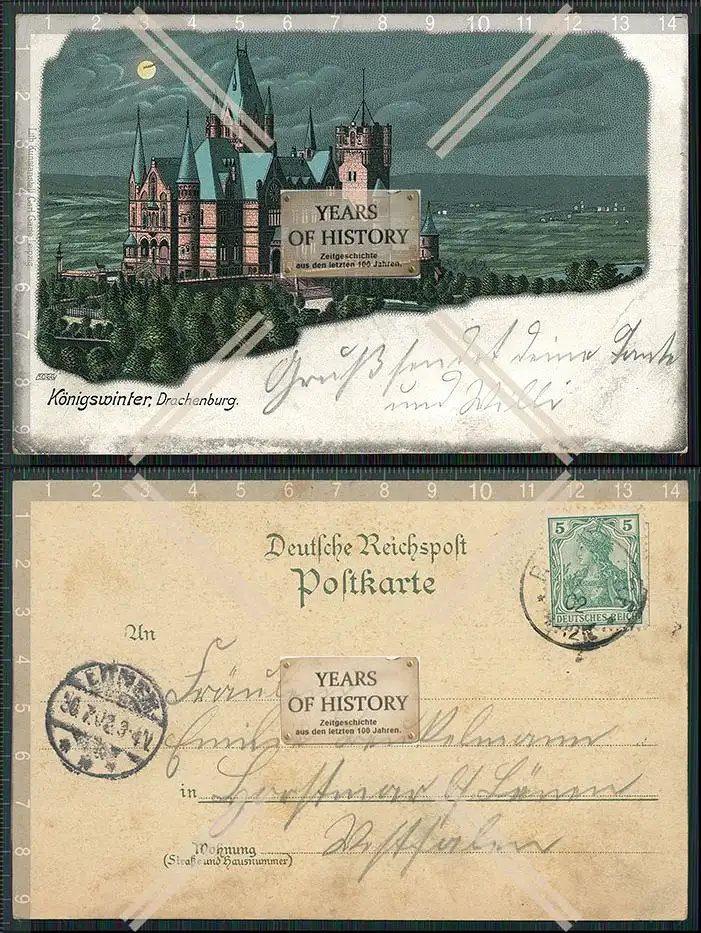 1 2 3 4 5 6 7 8 9 10 11 12 13 14
2 3 4 5 6 7 8 9
YEARS
OF HISTORY
Zeitgeschichte
aus den letzten 100 Jahren.
Gruß sendet deine Tante
und Willi
Königswinter, Drachenburg.
1 2 3 4 5 6 7 8 9 10 11 12 13 14
2 3 4 5 6 7 8 9
Deutsche Reichspost
Postkarte
5 5
DEUTSCHES REICH
02
An
LÜNEN
30.7.02.3-4N.
YEARS
OF HISTORY
Zeitgeschichte
aus den letzten 100 Jahren.
in Horstmar b/ Lünen
Westfalen
Wohnung
(Straße und Hausnummer)